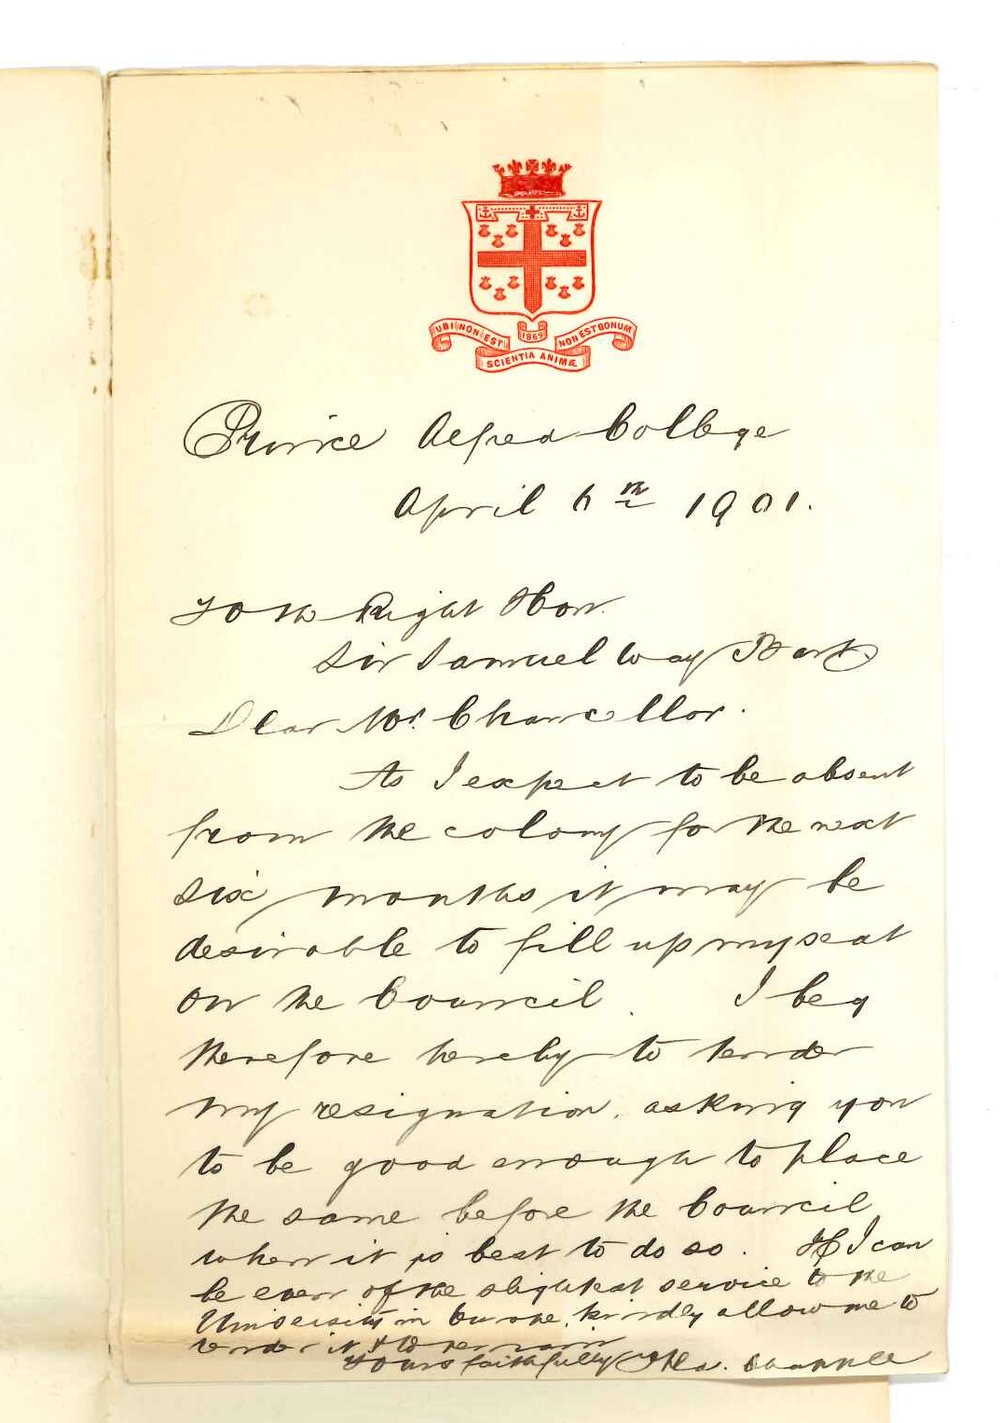 UBI NON EST
1869
NON EST BONUM
SCIENTIA ANIMÆ
Prince Alfred College
April 6th 1901.
To the Right Hon.
Sir Samuel Way Bart
Dear Mr. Chancellor.
As I expect to be absent
from the colony for the next
six months it may be
desirable to fill up my seat
on the Council. I beg
therefore hereby to tender
my resignation, asking you
to be good enough to place
the same before the Council
when it is best to do so. If I can
be even of the slightest service to the
University in Europe, kindly allow me to
render it & to remain
Yours faithfully Fred. Chapple